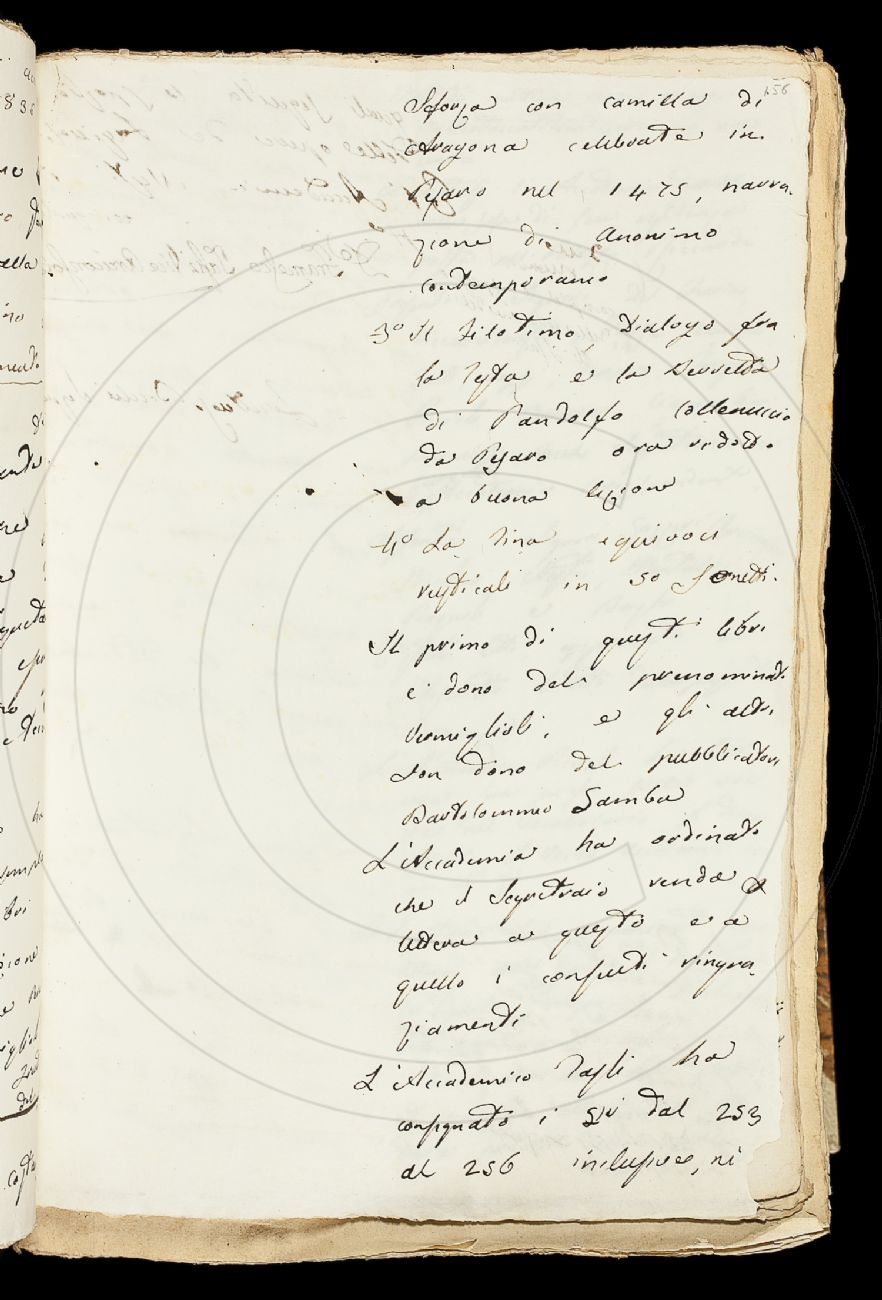 158
Sforza con camilla di
Aragona celebrate in
Pesaro nel 1475, narra-
zione di Anonimo
contemporaneo
3º Il Filotimo, Dialogo fra
la testa e la Berretta
di Pandolfo Collenuccio
da Pesaro ora ridotto
a buona lezione
4º La Tina equivoci
rusticali in 50 Sonetti.
Il primo di questi libri
è dono del prenominato
Vermiglioli, e gli altri
son dono del pubblicatore
Bartolommeo Gamba
L'Accademia ha ordinato
che il Segretario renda
lettera a questo e a
quello i consueti ringra-
ziamenti
L'Accademico ha
consegnato i dal 253
al 256 inclusive, ni